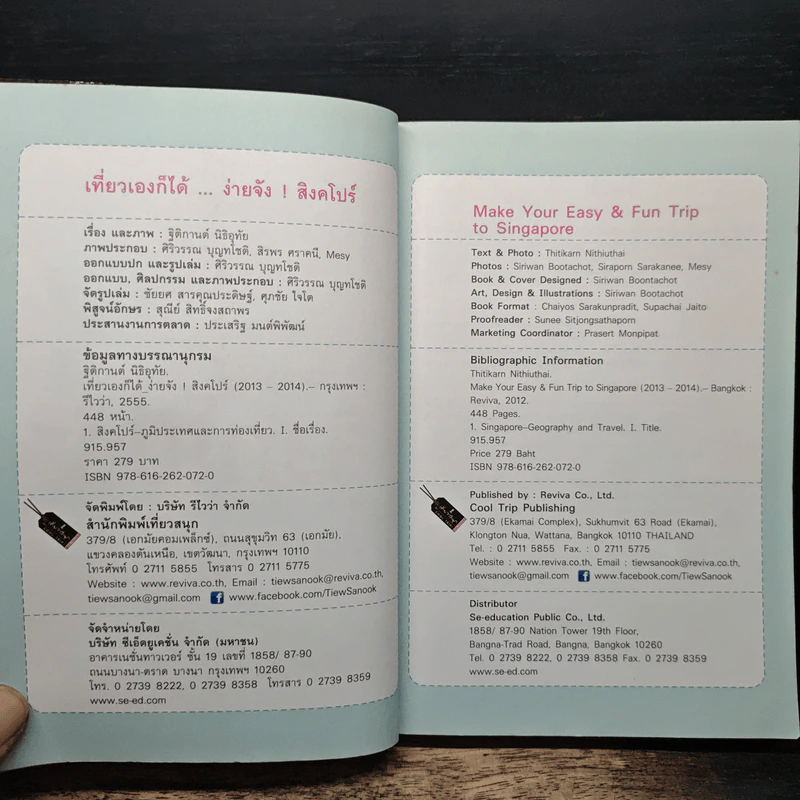 เที่ยวเองก็ได้ ... ง่ายจัง ! สิงคโปร์
เรื่อง และภาพ : ฐิติกานต์ นิธิอุทัย
ภาพประกอบ : ศิริวรรณ บุญทโชติ, สิรพร ศราคนี, Mesy
ออกแบบปก และรูปเล่ม : ศิริวรรณ บุญทโชติ
ออกแบบ, ศิลปกรรม และภาพประกอบ : ศิริวรรณ บุญทโชติ
จัดรูปเล่ม : ชัยยศ สารคุณประดิษฐ์, ศุภชัย ใจโต
พิสูจน์อักษร : สุณีย์ สิทธิ์จงสถาพร
ประสานงานการตลาด : ประเสริฐ มนต์พิพัฒน์
ข้อมูลทางบรรณานุกรม
ฐิติกานต์ นิธิอุทัย.
เที่ยวเองก็ได้ ง่ายจัง ! สิงคโปร์ (2013 – 2014).– กรุงเทพฯ :
รีไวว่า, 2555.
448 หน้า.
1. สิงคโปร์–ภูมิประเทศและการท่องเที่ยว. I. ชื่อเรื่อง.
915.957
ราคา 279 บาท
ISBN 978-616-262-072-0
จัดพิมพ์โดย : บริษัท รีไวว่า จำกัด
สำนักพิมพ์เที่ยวสนุก
379/8 (เอกมัยคอมเพล็กซ์), ถนนสุขุมวิท 63 (เอกมัย),
แขวงคลองตันเหนือ, เขตวัฒนา, กรุงเทพฯ 10110
โทรศัพท์ 0 2711 5855 โทรสาร 0 2711 5775
Website : www.reviva.co.th, Email : tiewsanook@reviva.co.th,
tiewsanook@gmail.com f www.facebook.com/TiewSanook
จัดจำหน่ายโดย
บริษัท ซีเอ็ดยูเคชั่น จำกัด (มหาชน)
อาคารเนชั่นทาวเวอร์ ชั้น 19 เลขที่ 1858/ 87-90
ถนนบางนา-ตราด บางนา กรุงเทพฯ 10260
โทร. 0 2739 8222, 0 2739 8358 โทรสาร 0 2739 8359
www.se-ed.com
Make Your Easy & Fun Trip
to Singapore
Text & Photo : Thitikarn Nithiuthai
Photos : Siriwan Bootachot, Siraporn Sarakanee, Mesy
Book & Cover Designed : Siriwan Boontachot
Art, Design & Illustrations : Siriwan Bootachot
Book Format : Chaiyos Sarakunpradit, Supachai Jaito
Proofreader : Sunee Sitjongsathaporn
Marketing Coordinator : Prasert Monpipat
Bibliographic Information
Thitikarn Nithiuthai.
Make Your Easy & Fun Trip to Singapore (2013 – 2014).– Bangkok :
Reviva, 2012.
448 Pages.
1. Singapore–Geography and Travel. I. Title.
915.957
Price 279 Baht
ISBN 978-616-262-072-0
Published by : Reviva Co., Ltd.
Cool Trip Publishing
379/8 (Ekamai Complex), Sukhumvit 63 Road (Ekamai),
Klongton Nua, Wattana, Bangkok 10110 THAILAND
Tel. : 0 2711 5855 Fax. : 0 2711 5775
Website : www.reviva.co.th, Email : tiewsanook@reviva.co.th,
tiewsanook@gmail.com f www.facebook.com/TiewSanook
Distributor
Se-education Public Co., Ltd.
1858/ 87-90 Nation Tower 19th Floor,
Bangna-Trad Road, Bangna, Bangkok 10260
Tel. 0 2739 8222, 0 2739 8358 Fax. 0 2739 8359
www.se-ed.com